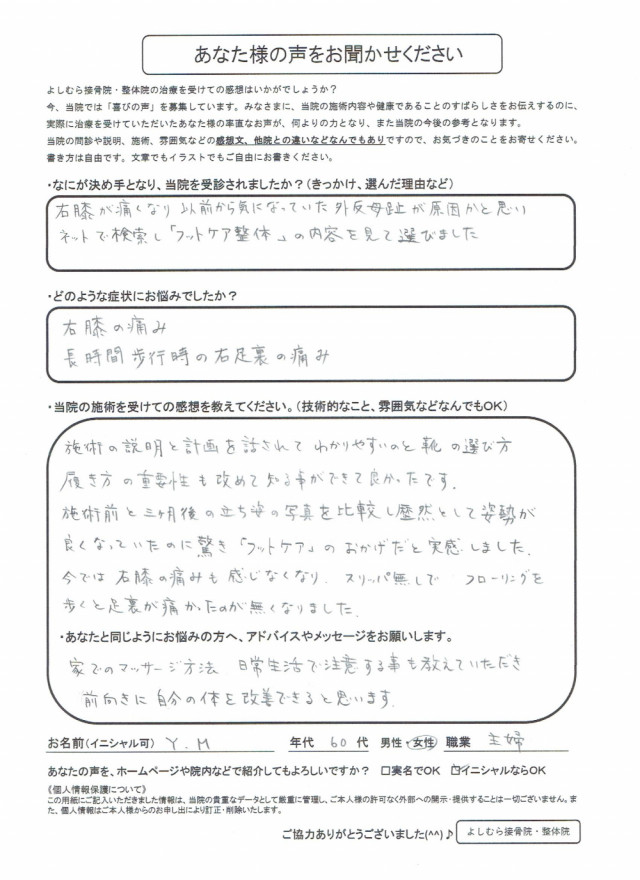 あなた様の声をお聞かせください
よしむら接骨院・整体院の治療を受けての感想はいかがでしょうか？
今、当院では「喜びの声」を募集しています。みなさまに、当院の施術内容や健康であることのすばらしさをお伝えするのに、
実際に治療を受けていただいたあなた様の率直なお声が、何よりの力となり、また当院の今後の参考となります。
当院の問診や説明、施術、雰囲気などの感想文、他院との違いなどなんでもありですので、お気づきのことをお寄せください。
書き方は自由です。文章でもイラストでもご自由にお書きください。
・なにが決め手となり、当院を受診されましたか？（きっかけ、選んだ理由など）
右膝が痛くなり 以前から気になっていた外反母趾が原因かと思い
ネットで検索し「フットケア整体」の内容を見て選びました
・どのような症状にお悩みでしたか？
右膝の痛み
長時間歩行時の右足裏の痛み
・当院の施術を受けての感想を教えてください。（技術的なこと、雰囲気などなんでもOK）
施術の説明と計画を話されて わかりやすいのと 靴の選び方
履き方の重要性も改めて知る事ができて良かったです.
施術前と三ヶ月後の立ち姿の写真を比較し歴然として姿勢が
良くなっていたのに驚き「フットケア」のおかげだと実感しました.
今では 右膝の痛みも感じなくなり. スリッパ無しで フローリングを
歩くと足裏が痛かったのが無くなりました.
・あなたと同じようにお悩みの方へ、アドバイスやメッセージをお願いします。
家でのマッサージ方法 日常生活で注意する事も教えていただき
前向きに自分の体を改善できると思います.
お名前（イニシャル可） Y.M 年代 60代 男性・女性 職業 主婦
あなたの声を、ホームページや院内などで紹介してもよろしいですか？ □実名でOK ☑イニシャルならOK
《個人情報保護について》
この用紙にご記入いただきました情報は、当院の貴重なデータとして厳重に管理し、ご本人様の許可なく外部への開示・提供することは一切ございません。ま
た、個人情報はご本人様からのお申し出により訂正・削除いたします。
ご協力ありがとうございました(^^)♪ よしむら接骨院・整体院